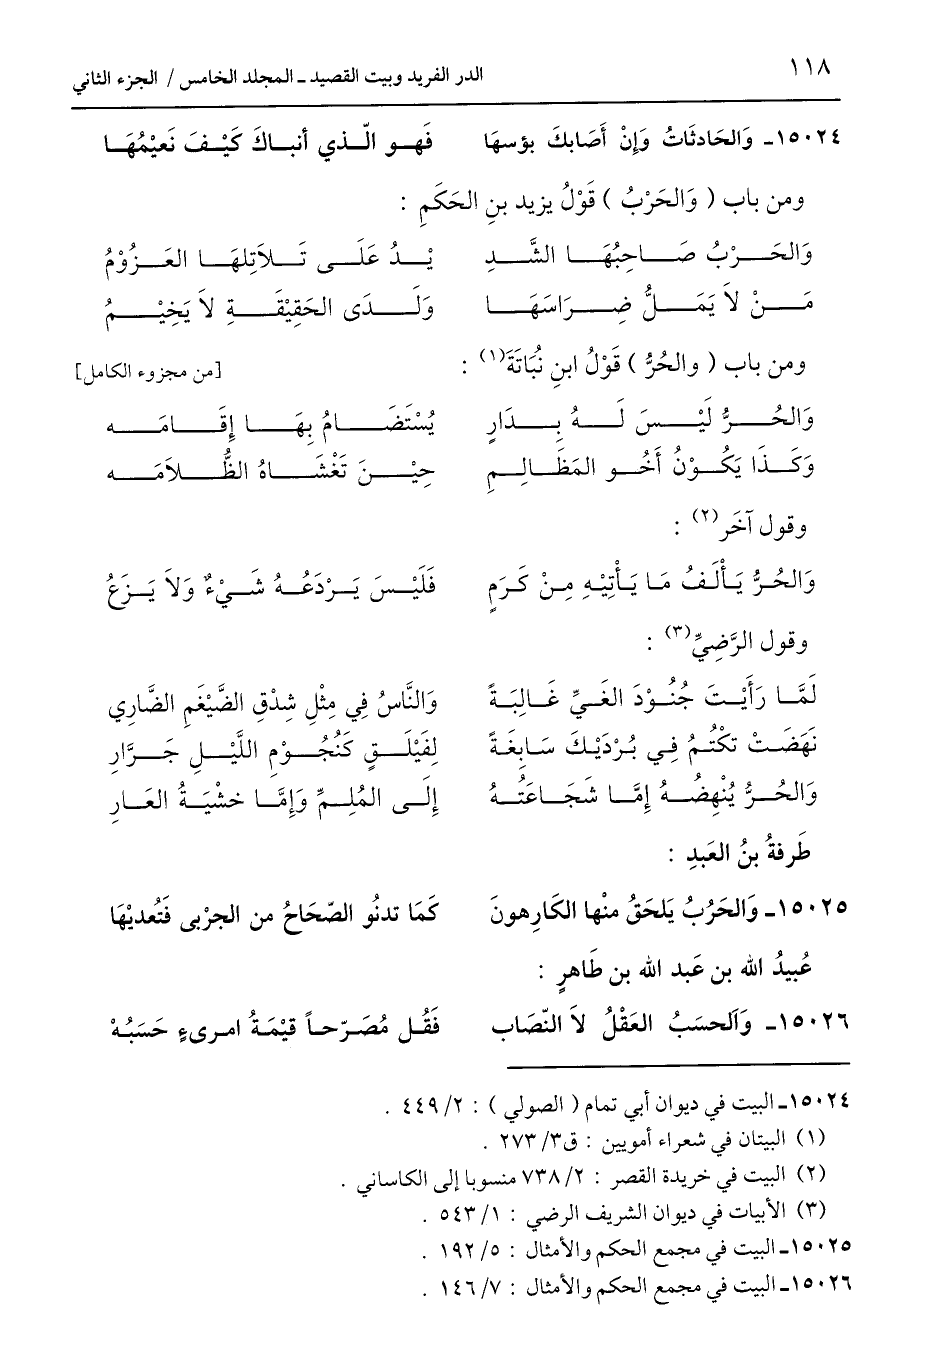 ١١٨
الدر الفريد وبيت القصيد ـ المجلد الخامس / الجزء الثاني
١٥٠٢٤ـ وَالحَادثَاتُ وَإنْ أَصَابكَ بؤسهَا فَهو الّذي أنباكَ كَيْفَ نَعيْمُهَا
ومن باب ( وَالحَرْبُ ) قَوْلُ يزيد بنِ الحَكَمِ :
وَالحَرْبُ صَاحِبُهَا الشَّدِ يْدُ عَلَى تَلاَتِلهَا العَزُوْمُ
مَنْ لاَ يَمَلُّ ضِرَاسَهَا وَلَدَى الحَقِيْقَةِ لاَ يَخِيْمُ
ومن باب ( والحُرُّ ) قَوْلُ ابنِ نُبَاتَةَ(١) : [من مجزوء الكامل]
وَالحُرُّ لَيْسَ لَهُ بِدَارٍ يُسْتَضَامُ بِهَا إِقَامَه
وَكَذَا يَكُوْنُ أَخُو المَظَالِمِ حِيْنَ تَغْشَاهُ الظُّلاَمَه
وقول آخَر(٢) :
وَالحُرُّ يَأْلَفُ مَا يَأْتِيْهِ مِنْ كَرَمٍ فَلَيْسَ يَرْدَعُهُ شَيْءٌ وَلاَ يَزَعُ
وقول الرَّضِيِّ(٣) :
لَمَّا رَأَيْتَ جُنُوْدَ الغَيِّ غَالِبَةً وَالنَّاسُ فِي مِثْلِ شِدْقِ الضَّيْغَمِ الضَّارِي
نَهَضَتْ تكْتُمُ فِي بُرْدَيْكَ سَابِغَةً لِفَيْلَقٍ كَنُجُوْمِ اللَّيْلِ جَرَّارِ
وَالحُرُّ يُنْهِضُهُ إِمَّا شَجَاعَتُهُ إِلَى المُلِمِّ وَإِمَّا خشْيَةُ العَارِ
طَرفةُ بنُ العَبدِ :
١٥٠٢٥ـ وَالحَرْبُ يَلحَقُ منْها الكَارِهونَ كَمَا تدنُو الصّحَاحُ من الجرْبى فَتُعديْهَا
عُبيدُ الله بن عَبد الله بن طَاهرٍ :
١٥٠٢٦ـ وَاَلحسَبُ العَقْلُ لاَ النّصَاب فَقُل مُصَرّحاً قيْمَةُ امرىءٍ حَسَبُهْ
١٥٠٢٤ـ البيت في ديوان أبي تمام ( الصولي ) : ٤٤٩/٢ .
(١) البيتان في شعراء أمويين : ق٢٧٣/٣ .
(٢) البيت في خريدة القصر : ٧٣٨/٢ منسوبا إلى الكاساني .
(٣) الأبيات في ديوان الشريف الرضي : ٥٤٣/١ .
١٥٠٢٥ـ البيت في مجمع الحكم والأمثال : ١٩٢/٥ .
١٥٠٢٦ـ البيت في مجمع الحكم والأمثال : ١٤٦/٧ .